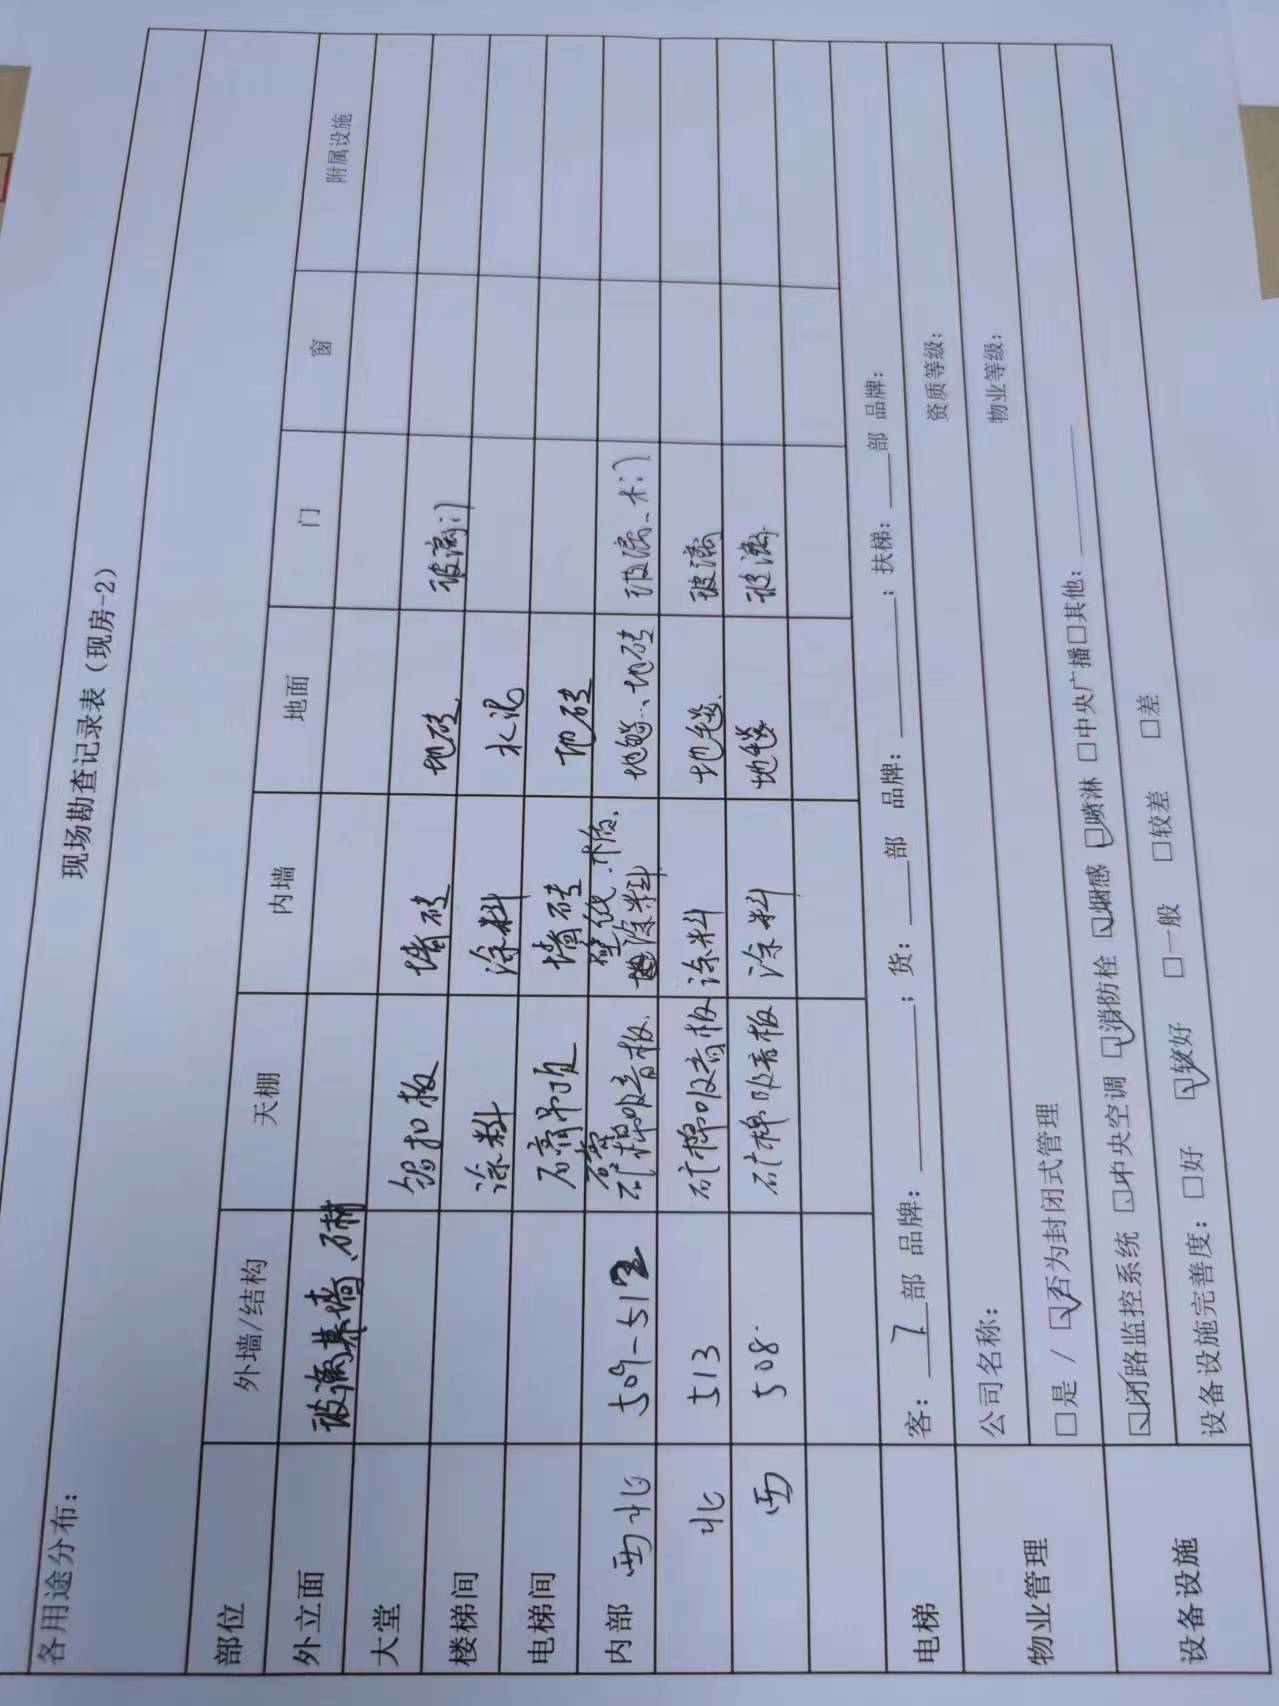 现场勘查记录表（现房-2）
各用途分布：
部位 外墙/结构 天棚 内墙 地面 门 窗 附属设施
外立面 玻璃幕墙、石材
大堂 铝扣板 墙砖 地砖 玻璃门
楼梯间 涂料 涂料 水泥
电梯间 石膏吊顶 墙砖 地砖
内部 西北 509-512 矿棉吸音板 壁纸、木质、涂料 地毯、地砖 玻璃、木门
北 513 矿棉吸音板 涂料 地毯 玻璃
西 508 矿棉吸音板 涂料 地毯 玻璃
电梯 客：7部 品牌： ；货： 部 品牌： ；扶梯： 部 品牌：
物业管理 公司名称： 资质等级：
□是 / ☑否为封闭式管理 物业等级：
设备设施 ☑闭路监控系统 ☑中央空调 ☑消防栓 ☑烟感 ☑喷淋 □中央广播□其他：
设备设施完善度： □好 ☑较好 □一般 □较差 □差